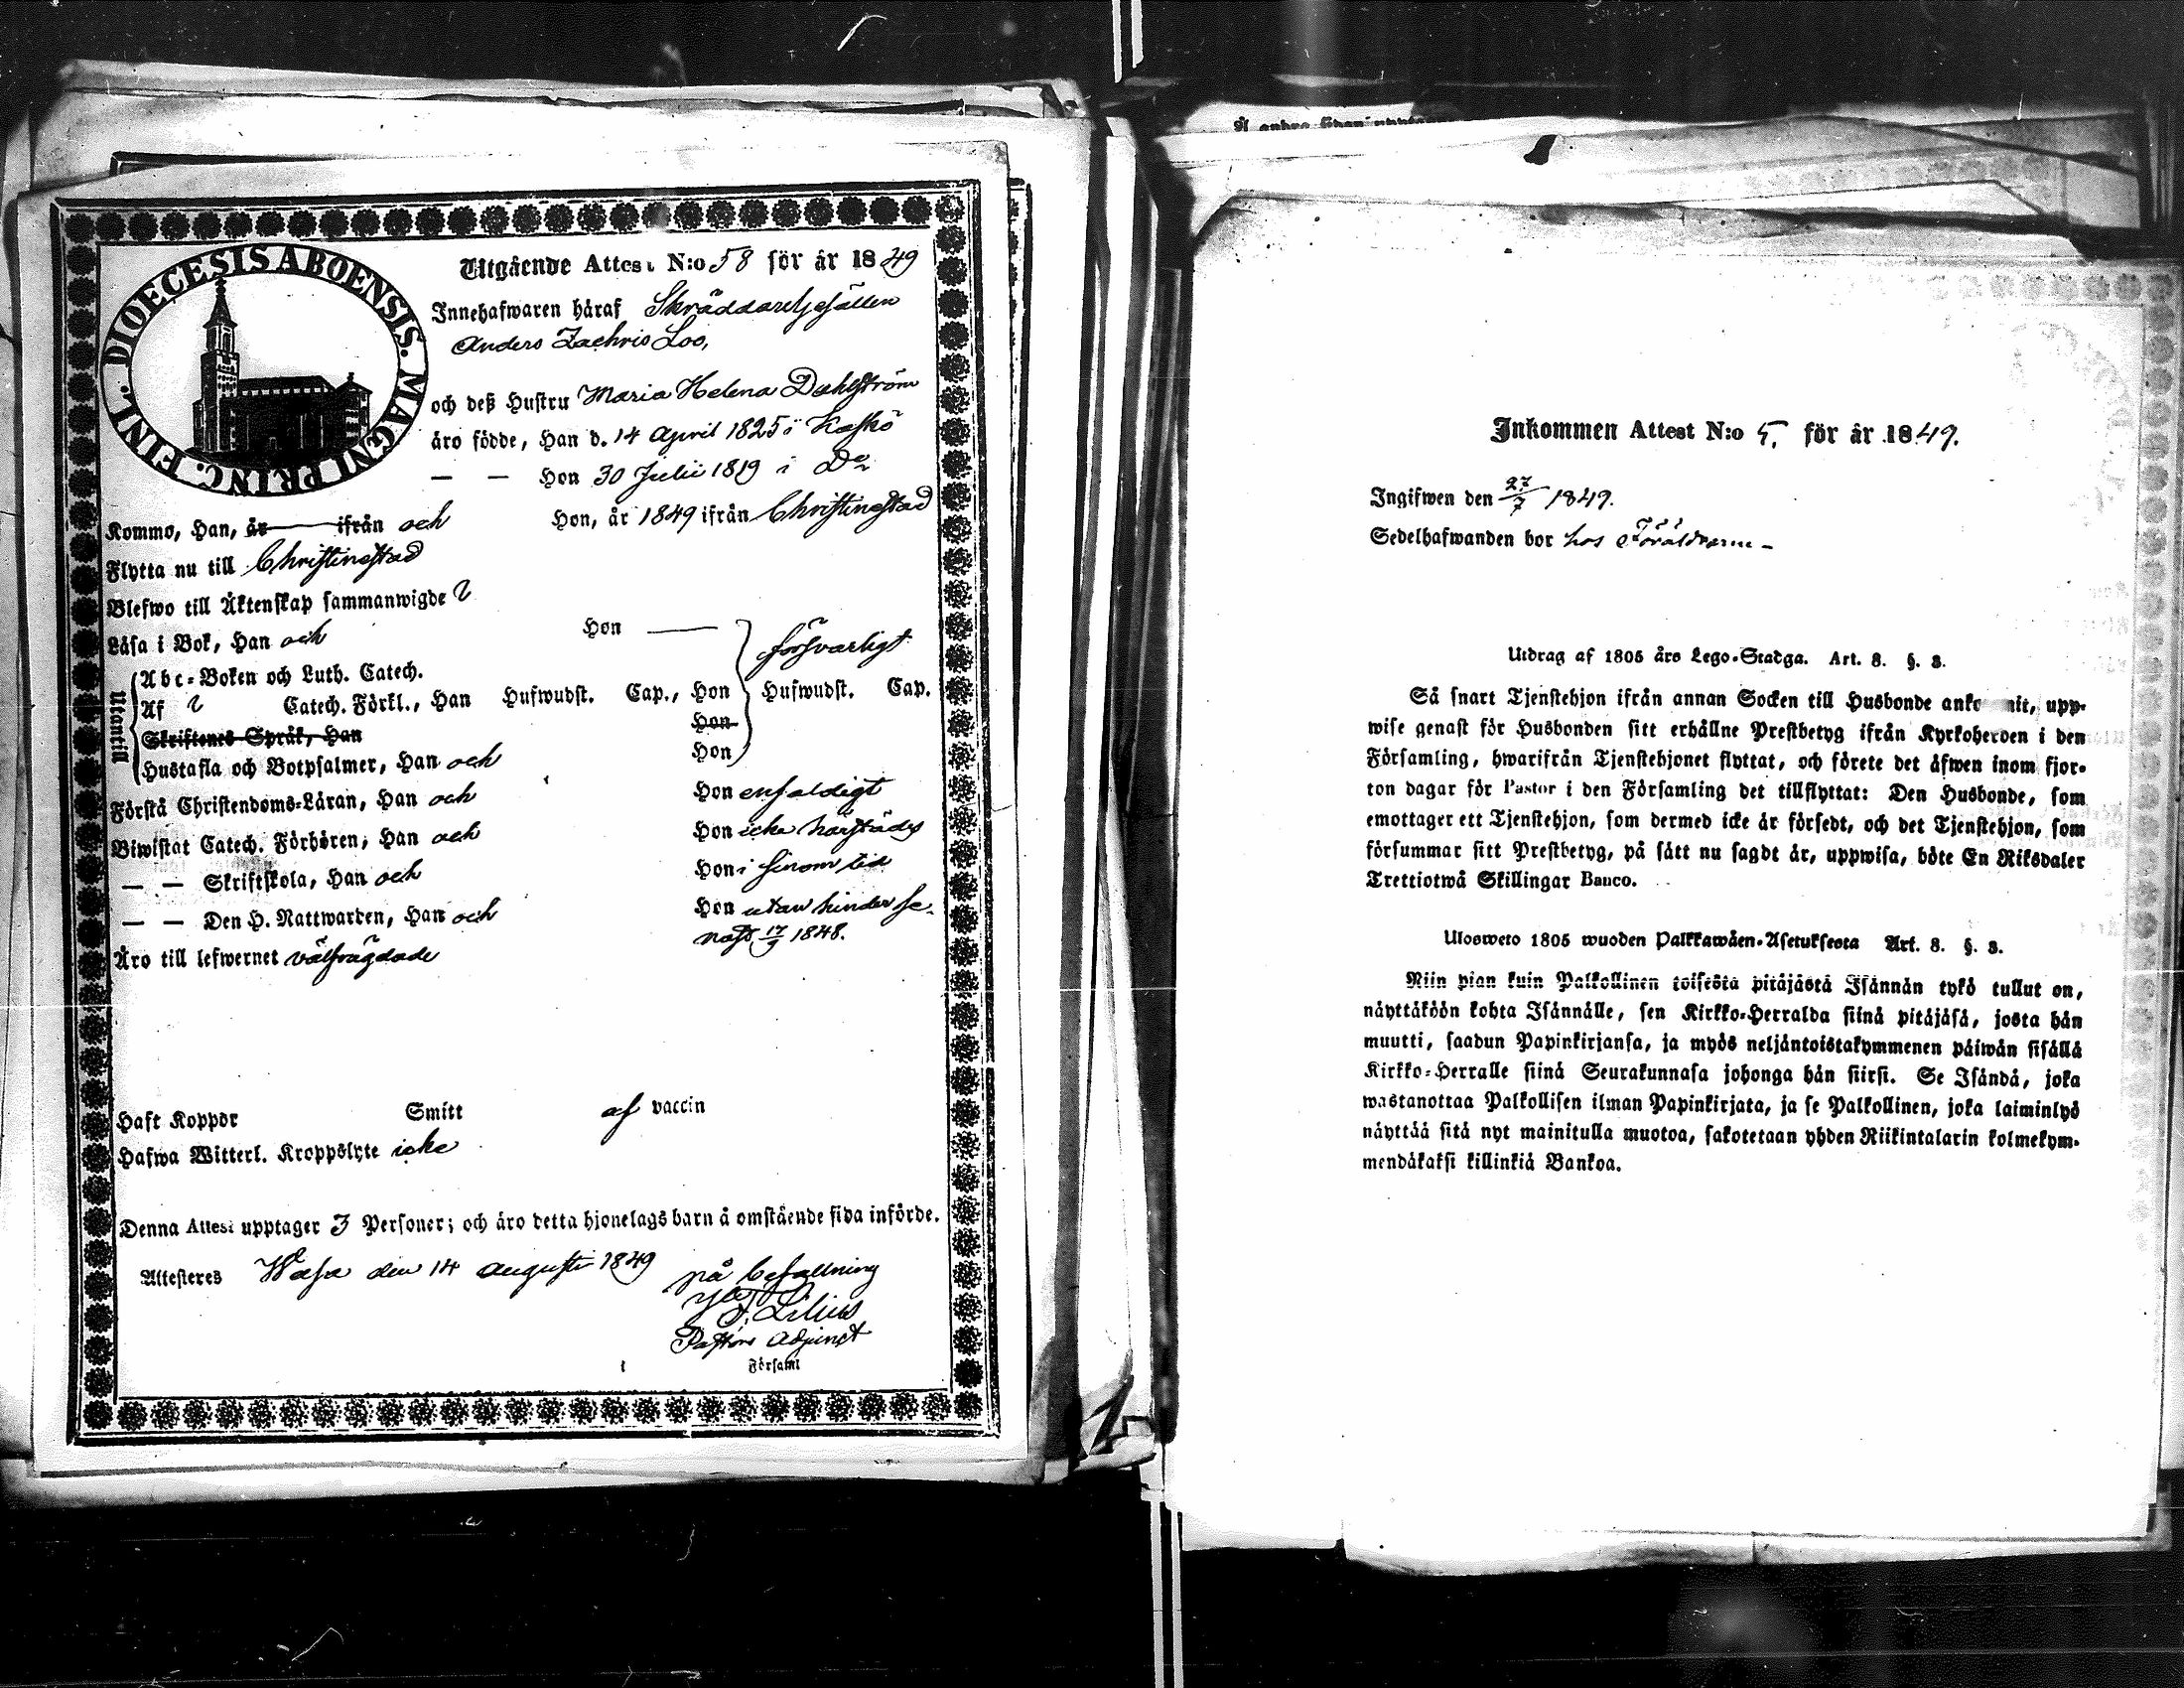 DIOECESIS ABOENSIS. MAGNI PRINC. FINL.
Utgående Attest N:o 58 för år 1849
Innehafwaren häraf Skräddaregesällen
Anders Zachris Loo,
och deß Hustru Maria Helena Dahlström
äro födde, Han d. 14 April 1825 i Kaskö
— — Hon 30 Julii 1819 i Do
Kommo, Han, år ifrån och Hon, år 1849 ifrån Christinestad
Flytta nu till Christinestad
Blefwo till Äktenskap sammanwigde
Läsa i Bok, Han och Hon — försvarligt
Utantill
Abc-Boken och Luth. Catech.
Af Catech. Förkl., Han Hufwudst. Cap., Hon Hufwudst. Cap.
Skriftenes Språk, Han Hon
Hustafla och Botpsalmer, Han och Hon
Förstå Christendoms-Läran, Han och Hon enfaldigt
Biwistat Catech. Förhören, Han och Hon icke härstädes
— — Skriftskola, Han och Hon i sinom tid
— — Den H. Nattwarden, Han och Hon utan hinder se-
nast 17/9 1848.
Äro till lefwernet välfrägdade
Haft Koppor Smitt af vaccin
Hafwa Witterl. Kroppslyte icke
Denna Attest upptager 3 Personer; och äro detta hjonelags barn å omstående sida införde.
Attesteras Wasa den 14 augusti 1849
på befallning
Lilius
Pastors Adjunct
Församl
Inkommen Attest N:o 5, för år 1849.
Ingifwen den 27/7 1849.
Sedelhafwanden bor hos Föräldrarne -
Utdrag af 1805 års Lego-Stadga. Art. 8. §. 3.
Så snart Tjenstehjon ifrån annan Socken till Husbonde anko mit, upp-
wise genast för Husbonden sitt erhållne Prestbetyg ifrån Kyrkoherden i den
Församling, hwarifrån Tjenstehjonet flyttat, och förete det äfwen inom fjor-
ton dagar för Pastor i den Församling det tillflyttat: Den Husbonde, som
emottager ett Tjenstehjon, som dermed icke är försedt, och det Tjenstehjon, som
försummar sitt Prestbetyg, på sätt nu sagdt är, uppwisa, böte En Riksdaler
Trettiotwå Skillingar Banco.
Ulosweto 1805 wuoden Palkkawäen-Asetuksesta Art. 8. §. 3.
Niin pian kuin Palkollinen toisesta pitäjästä Isännän tykö tullut on,
näyttäköön kohta Isännälle, sen Kirkko-Herralda siinä pitäjäsä, josta hän
muutti, saadun Papinkirjansa, ja myös neljäntoistakymmenen päiwän sisällä
Kirkko-Herralle siinä Seurakunnasa johonga hän siirsi. Se Isändä, joka
wastanottaa Palkollisen ilman Papinkirjata, ja se Palkollinen, joka laiminlyö
näyttää sitä nyt mainitulla muotoa, sakotetaan yhden Riikintalarin kolmekym-
mendäkaksi killinkiä Bankoa.